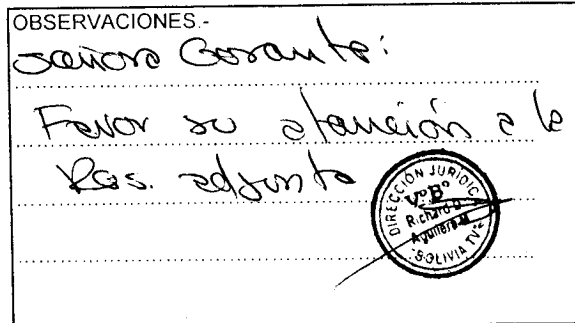 OBSERVACIONES.-
Señora Gerente:
Favor su atención a la
Res. adjunta
DIRECCIÓN JURIDICA
VºBº
Richard D.
Aguilera M.
BOLIVIA TV